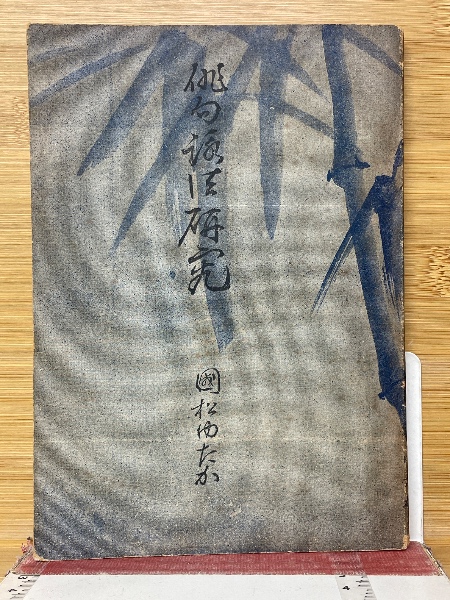 俳句語法研究
國松ゆたか